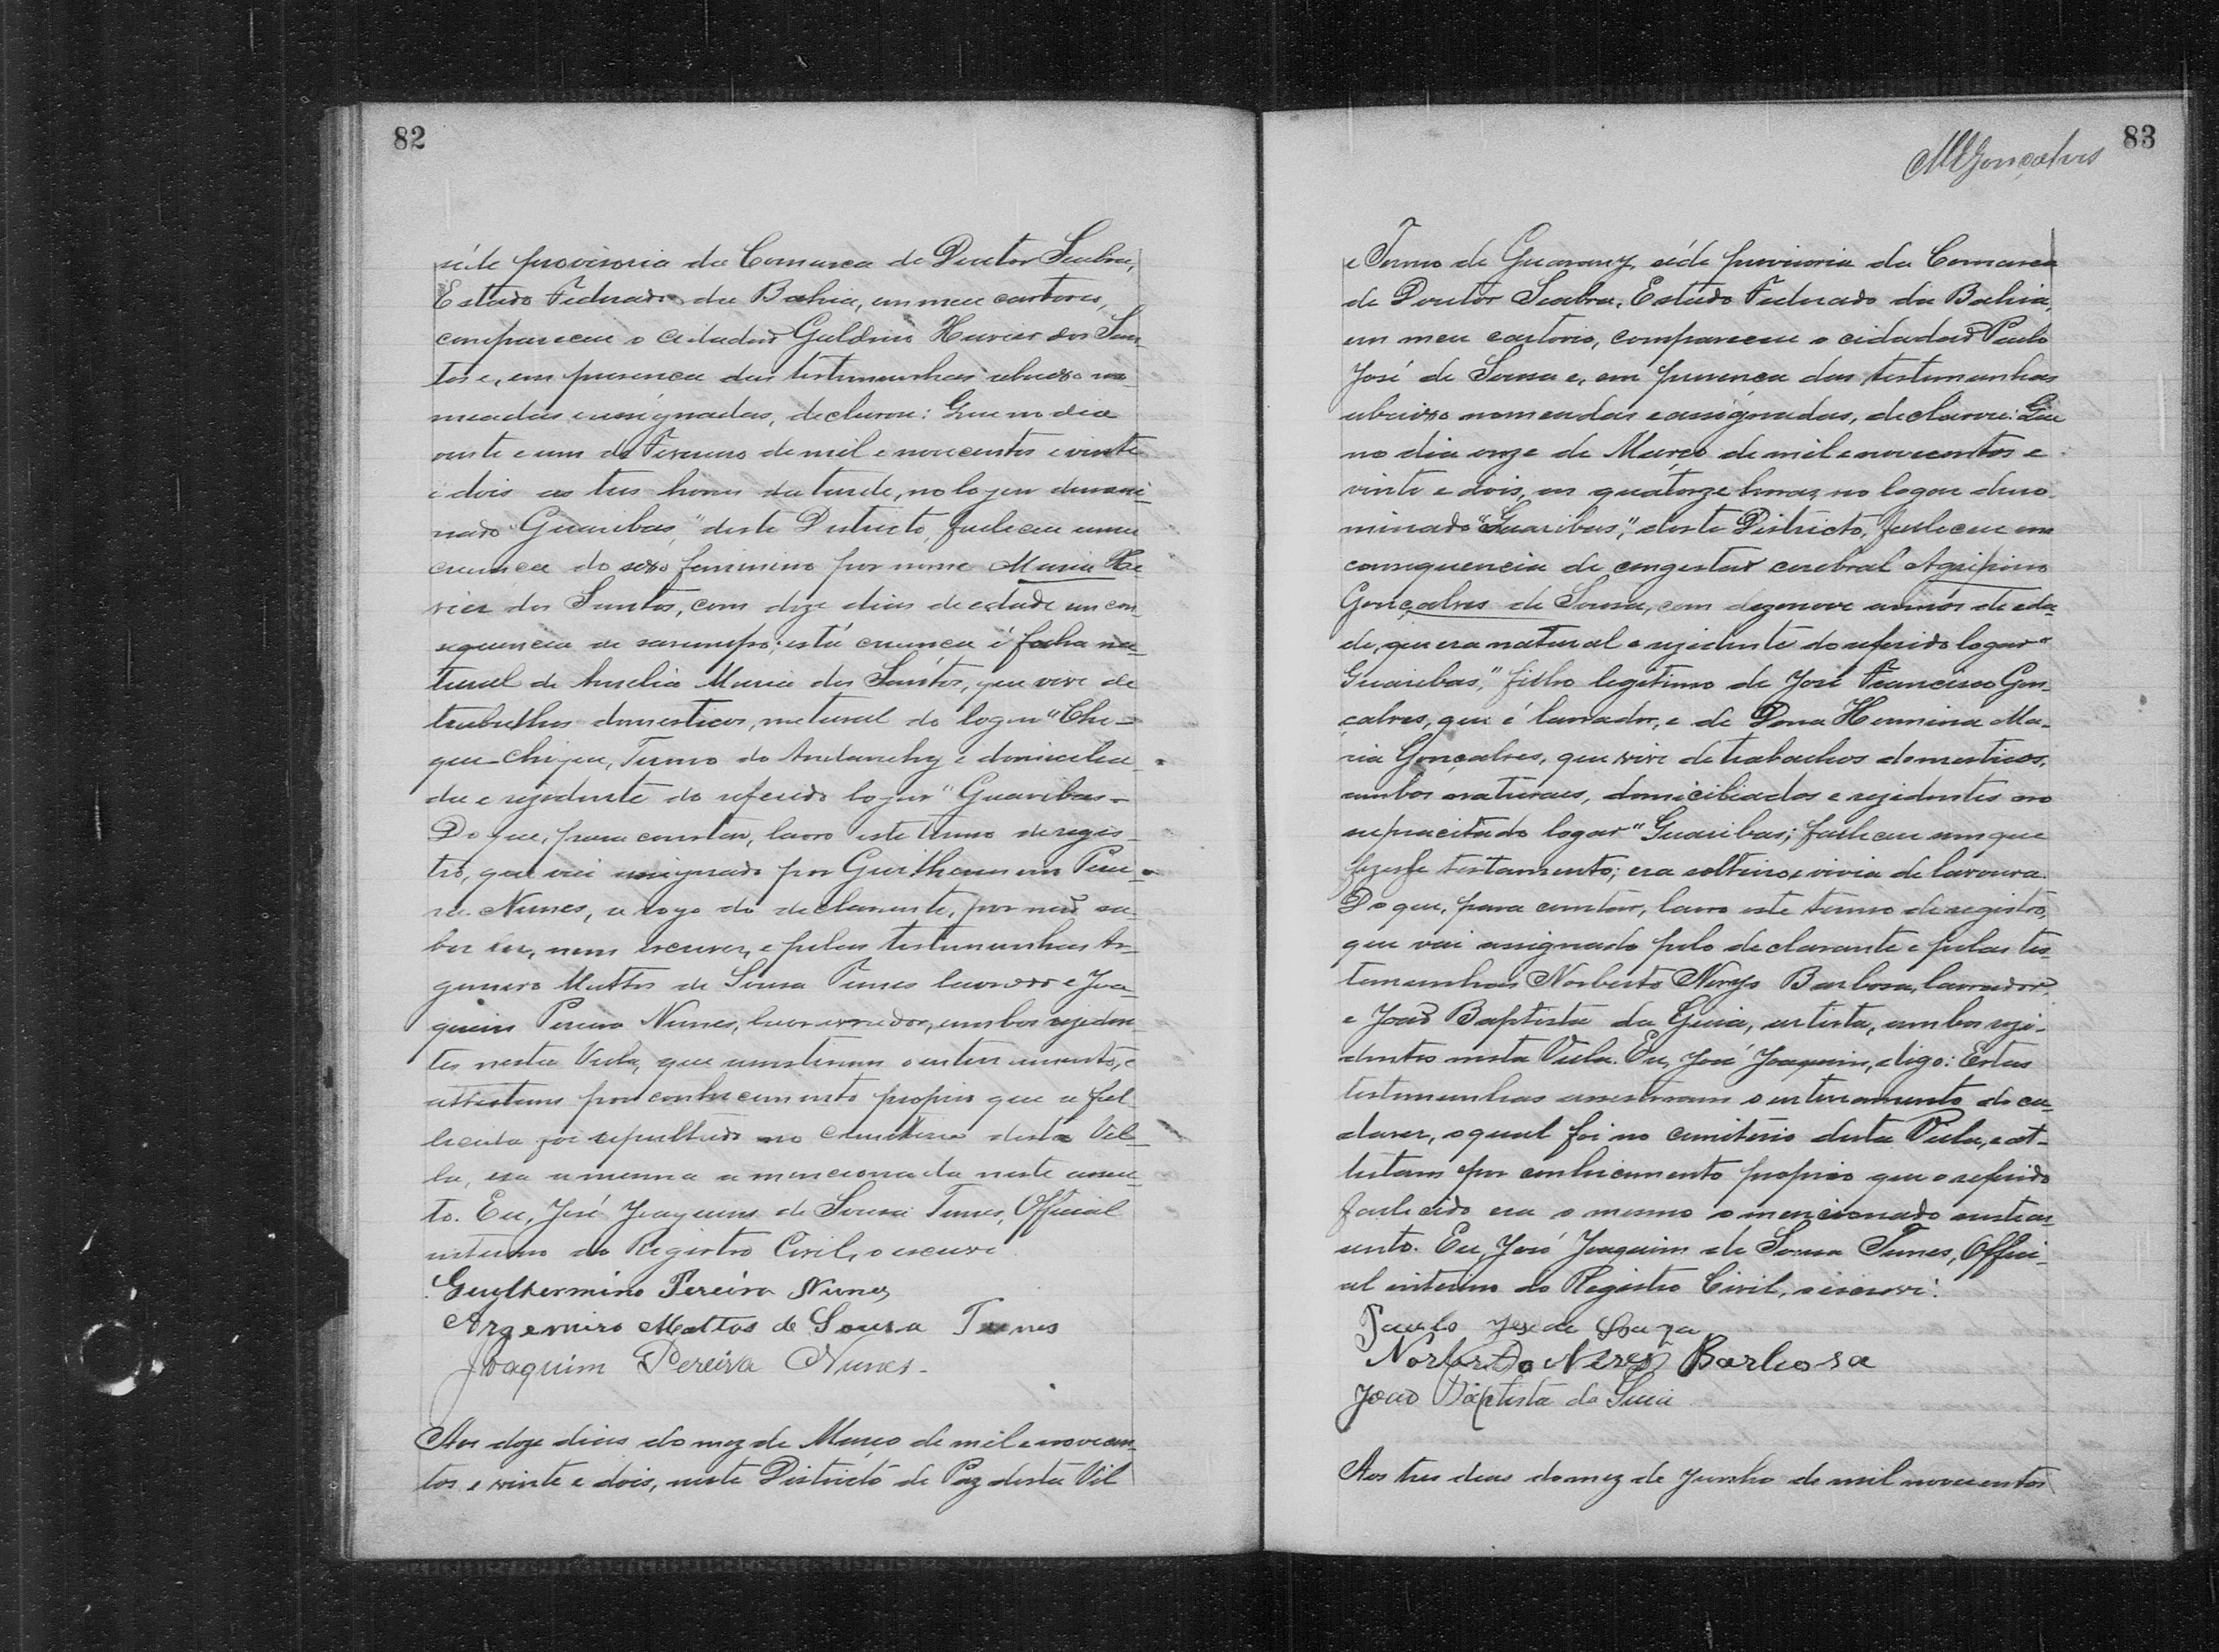 82
séde provisoria da Comarca de Doutor Seabra,
Estado Federado da Bahia, em meu cartorio,
compareceu o cidadão Galdino Havier dos San-
tos e, em presença das testemunhas abaixo no-
meadas e assignadas, declarou: Que no dia
vinte e um de Fevereiro de mil e novecentos e vinte
e dois as tres horas da tarde, no logar denomi-
nado "Guaribas," deste Districto, falleceu uma
creança do sexo feminino por nome Maria Ha-
vier dos Santos, com doze dias de edade em con-
sequencia de sarampo; esta creança é filha na-
tural de Amelia Maria dos Santos, que vive de
trabalhos domesticos, natural do logar "Chi-
que-Chique, Termo do Andarahy e domicilia-
da e rezidente do referido logar "Guaribas-
Do que, para constar, lavro este termo de regis-
tro, que vai assignado por Guilhermino Perei-
ra Nunes, a rogo do declarante, por não sa-
ber ler, nem escrever, e pelas testemunhas Ar-
gemiro Mattos de Sousa Tunes lavrador e Joa-
quim Pereira Nunes, lavrador, ambos reziden-
tes nesta Villa, que assistiram o enterramento, e
attestam por conhecimento proprio que a fal-
lecida foi sepultada no cemiterio desta Vil-
la, era a mesma a mencionada neste assen-
to. Eu, José Joaquim de Sousa Tunes, Official
interino do Registro Civil, o escrevi.
Guylhermino Pereira Nunes
Argemiro Mattos de Sousa Tunes
Joaquim Pereira Nunes-
Aos doze dias do mez de Março de mil e novecen-
tos e vinte e dois, neste Districto de Paz desta Vil
83
MGonçalves
e Termo de Guarany, séde provisoria da Comarca
de Doutor Seabra, Estado Federado da Bahia,
em meu cartorio, compareceu o cidadão Paulo
José de Sousa e, em presença das testemunhas
abaixo nomeadas e assignadas, declarou: Que
no dia onze de Março de mil e novecentos e
vinte e dois, as quatorze horas, no logar deno-
minado "Guaribas," deste Districto, falleceu em
consequencia de congestão cerebral Agripino
Gonçalves de Sousa, com dezenove annos de eda-
de, que era natural e rezidente do referido logar "
Guaribas," filho legitimo de José Francisco Gon-
çalves, que é lavrador, e de Dona Hermina Ma-
ria Gonçalves, que vive de trabalhos domesticos,
ambos naturaes, domiciliados e rezidentes no
supracitado logar "Guaribas; falleceu sem que
fizesse testamento; era solteiro e vivia de lavoura.
Do que, para constar, lavro este termo de registro,
que vai assignado pelo declarante e pelas tes-
temunhas Norberto Nerys Barbosa, lavrador,
e João Baptista da Guia, artista, ambos rezi-
dentes nesta Villa. Eu, José Joaquim, digo: Estas
testemunhas assistiram o enterramento do ca-
daver, o qual foi no cemiterio desta Villa, e at-
testam por conhecimento proprio que o referido
fallecido era o mesmo o mencionado neste as-
sento. Eu, José Joaquim de Sousa Tunes, Offici-
al interino do Registro Civil, o escrevi.
Paulo José de Souza
Norberto Neres Barbosa
João Baptista da Guia
Aos tres dias do mez de Junho de mil novecentos